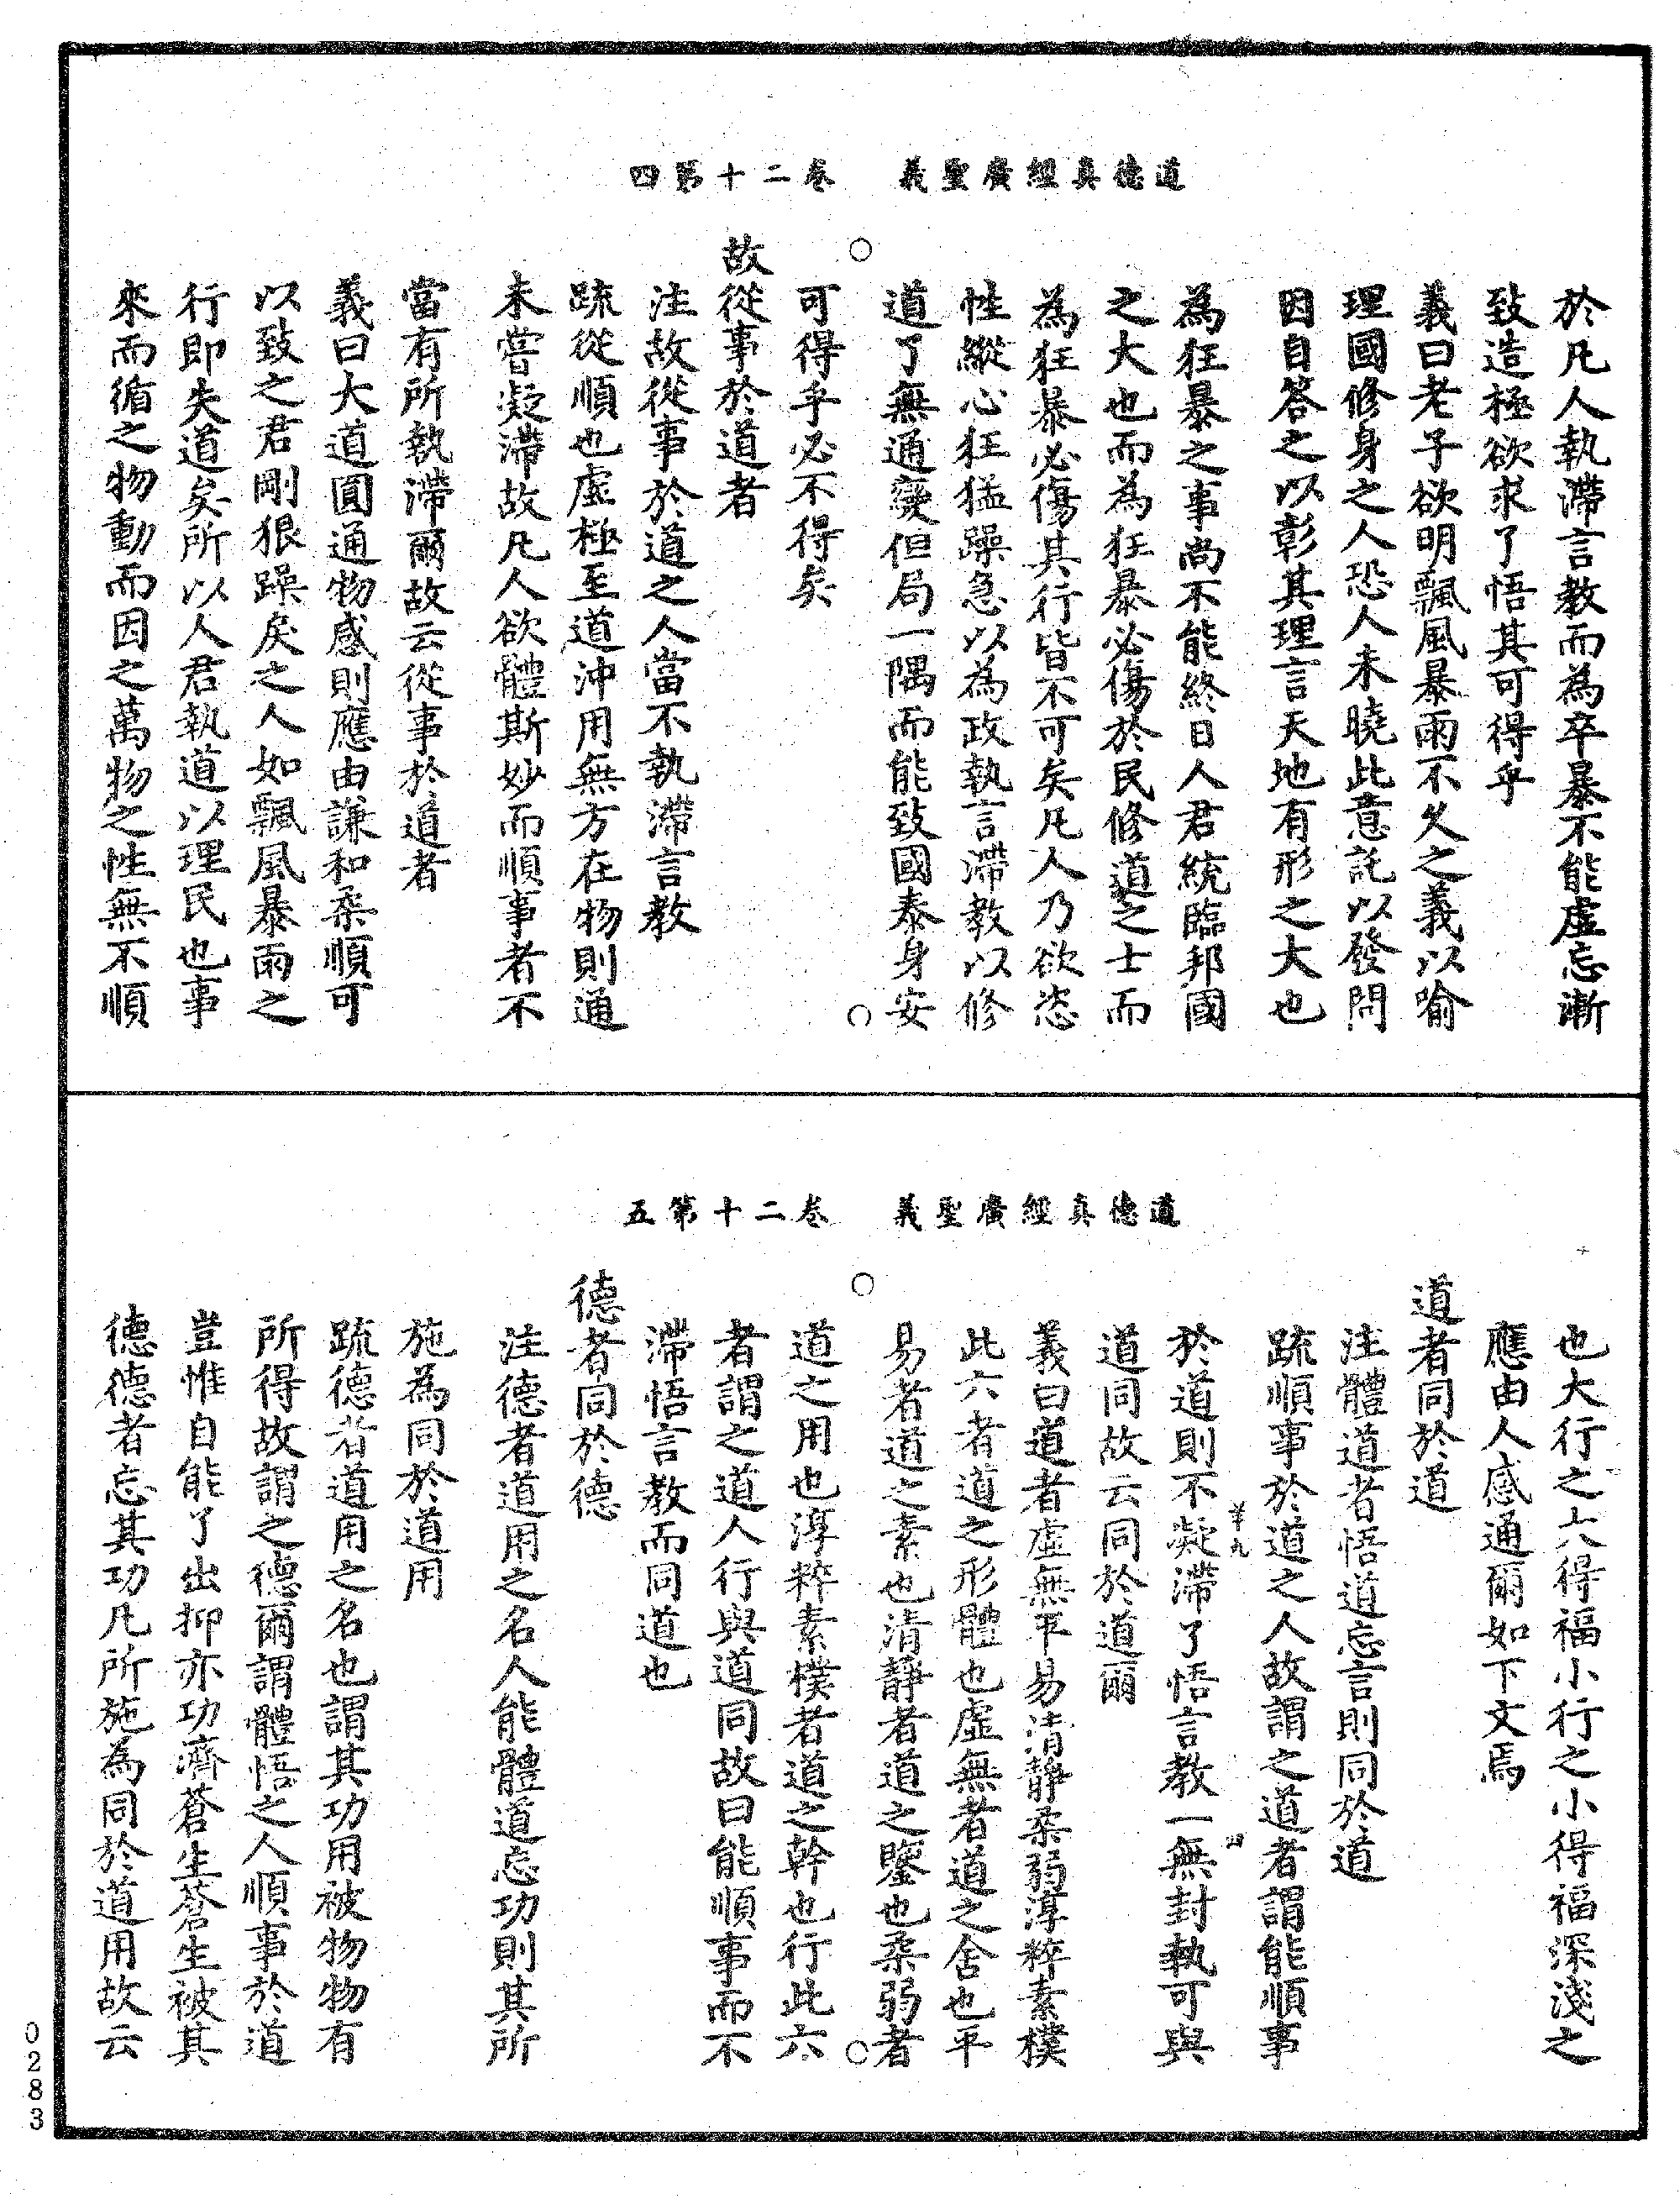 道德真經廣聖義　卷二十第四
於凡人執滯言教而為卒暴不能虛忘漸
致造極欲求了悟其可得乎
義曰老子欲明飄風暴雨不久之義以喻
理國修身之人恐人未曉此意託以發問
因自答之以彰其理言天地有形之大也
為狂暴之事尚不能終日人君統臨邦國
之大也而為狂暴必傷於民修道之士而
為狂暴必傷其行皆不可矣凡人乃欲恣
性縱心狂猛躁急以為政執言滯教以修
道了無通變但局一隅而能致國泰身安
可得乎必不得矣
故從事於道者
注故從事於道之人當不執滯言教
疏從順也虛極至道沖用無方在物則通
未嘗凝滯故凡人欲體斯妙而順事者不
當有所執滯爾故云從事於道者
義曰大道圓通物感則應由謙和柔順可
以致之君剛狠躁戾之人如飄風暴雨之
行即失道矣所以人君執道以理民也事
來而循之物動而因之萬物之性無不順
道德真經廣聖義　卷二十第五
也大行之大得福小行之小得福深淺之
應由人感通爾如下文焉
道者同於道
注體道者悟道忘言則同於道
疏順事於道之人故謂之道者謂能順事
羊九
於道則不凝滯了悟言教一無封執可與
道同故云同於道爾
義曰道者虛無平易清靜柔弱淳粹素樸
此六者道之形體也虛無者道之舍也平
易者道之素也清靜者道之鑒也柔弱者
道之用也淳粹素樸者道之幹也行此六
者謂之道人行與道同故曰能順事而不
滯悟言教而同道也
德者同於德
注德者道用之名人能體道忘功則其所
施為同於道用
疏德者道用之名也謂其功用被物物有
所得故謂之德爾謂體悟之人順事於道
豈惟自能了出抑亦功濟蒼生蒼生被其
德德者忘其功凡所施為同於道用故云
0283